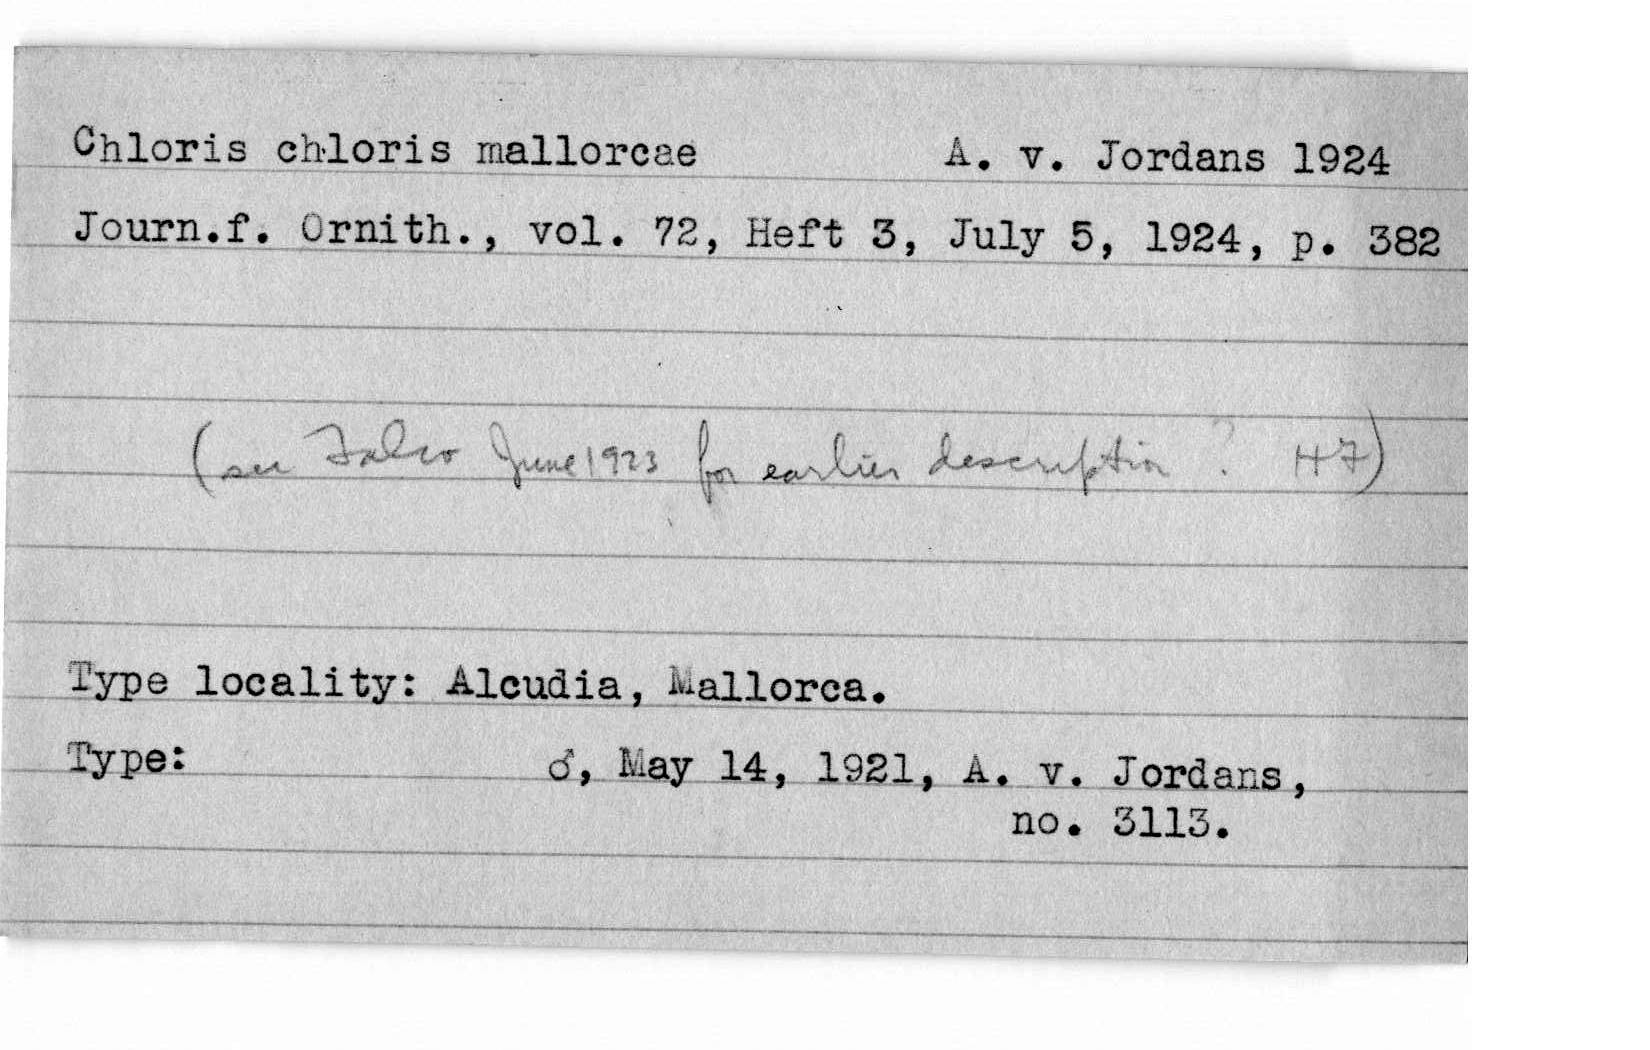 Chloris chloris mallorcae A. v. Jordans 1924
Journ.f. Ornith., vol. 72, Heft 3, July 5, 1924, p. 382
(see Falco June 1923 for earlier description ? HF)
Type locality: Alcudia, Mallorca.
Type: ♂, May 14, 1921, A. v. Jordans,
no. 3113.